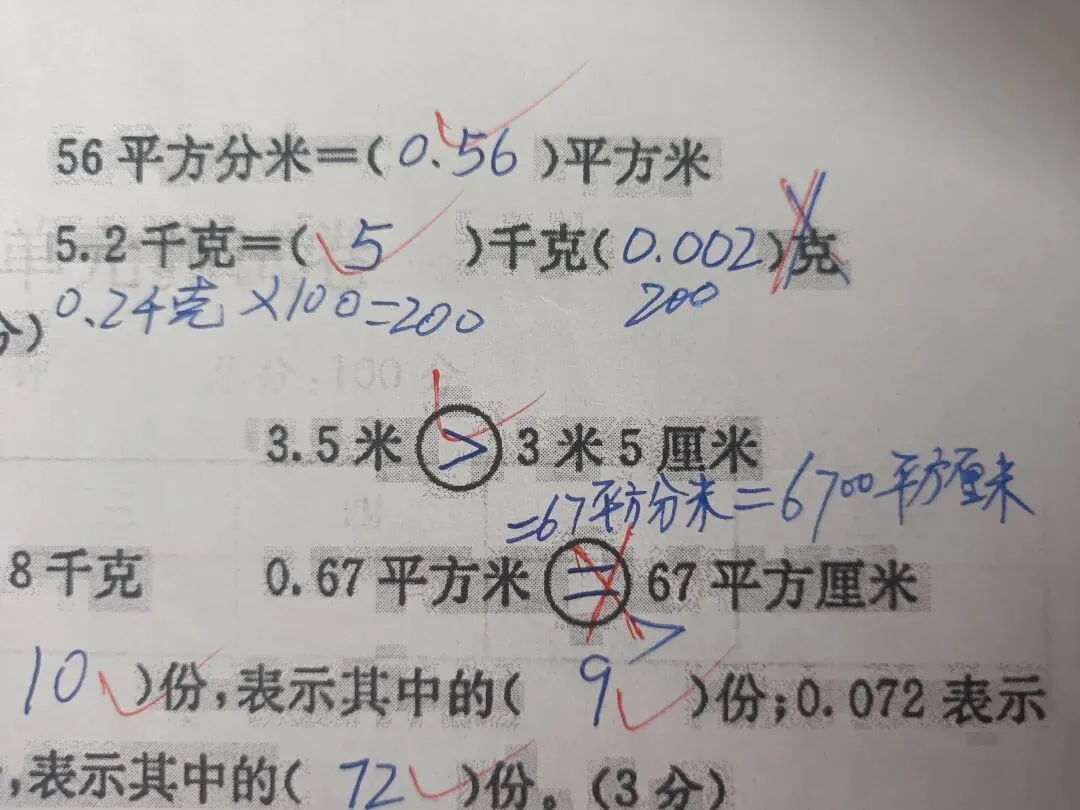 56平方分米=(0.56)平方米
5.2千克=(5)千克(0.002)克
0.2千克×100=200 200
分)
3.5米>3米5厘米
=67平方分米=6700平方厘米
8千克 0.67平方米=67平方厘米
>
10)份,表示其中的(9)份;0.072表示
,表示其中的(72)份。(3分)